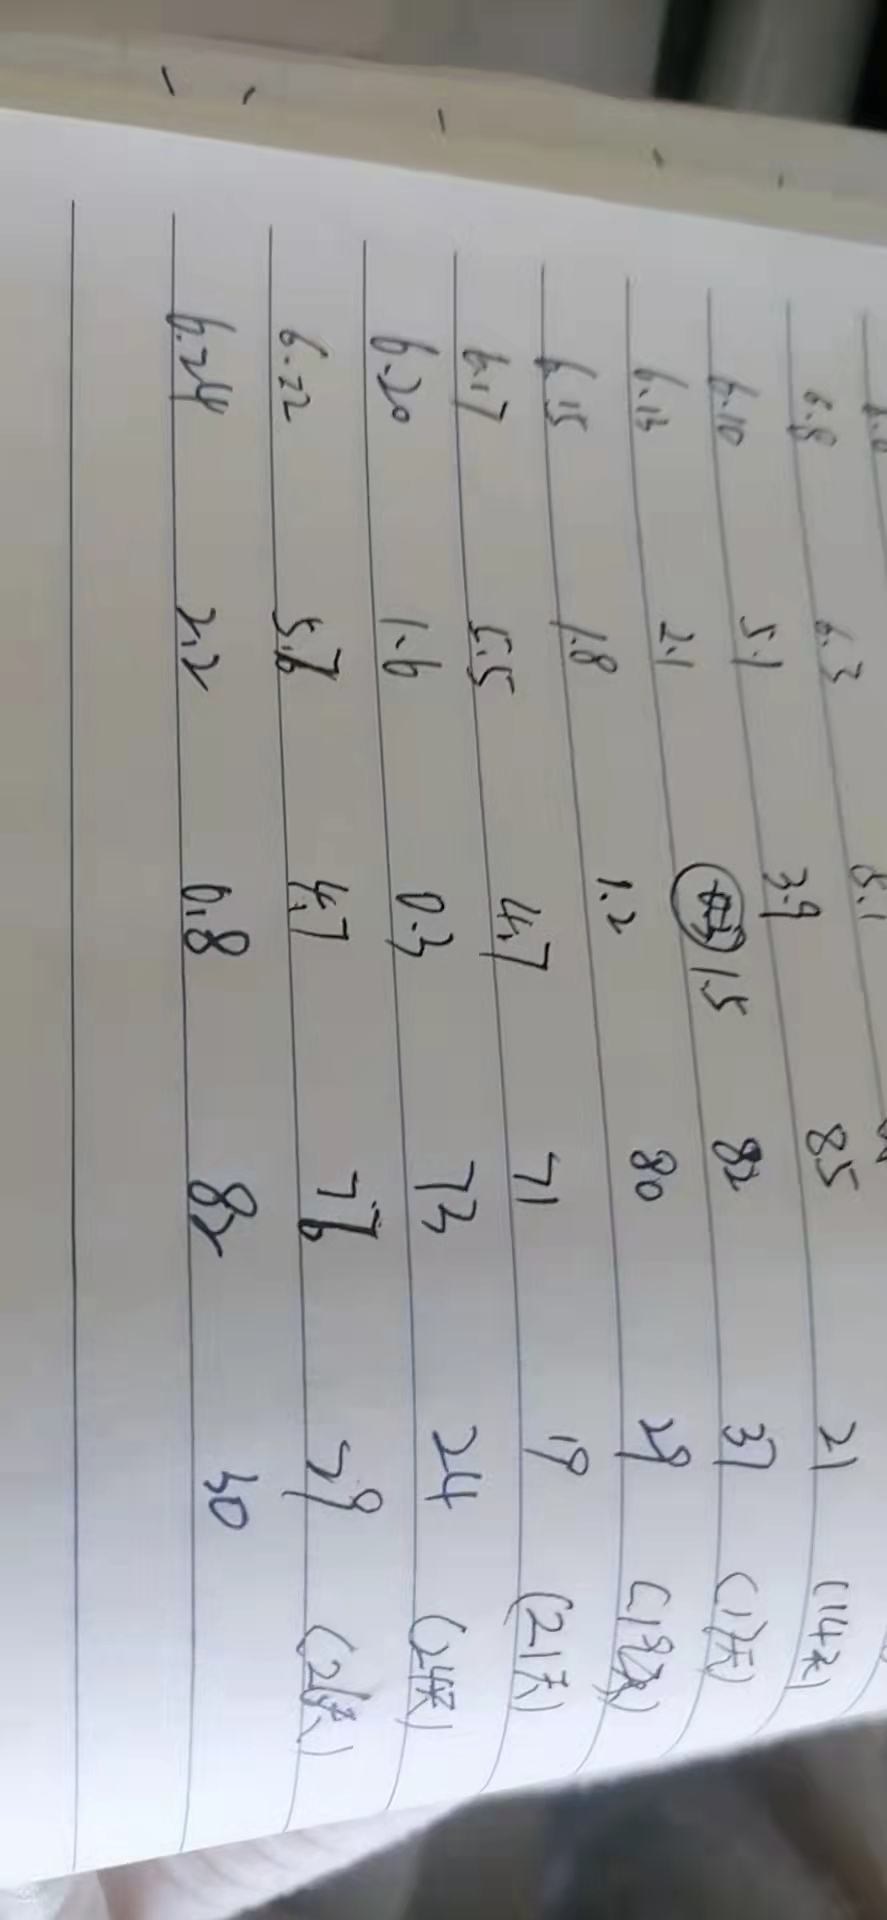 6.8 6.3 5.1
6.10 5.1 3.9 85 21 (14天)
6.13 2.1 1.5 82 37 (17天)
6.15 1.8 1.2 80 29 (19天)
6.17 5.5 4.7 71 19 (21天)
6.20 1.6 0.3 73 24 (24天)
6.22 4.7 76 29 (26天)
6.24 2.2 0.8 82